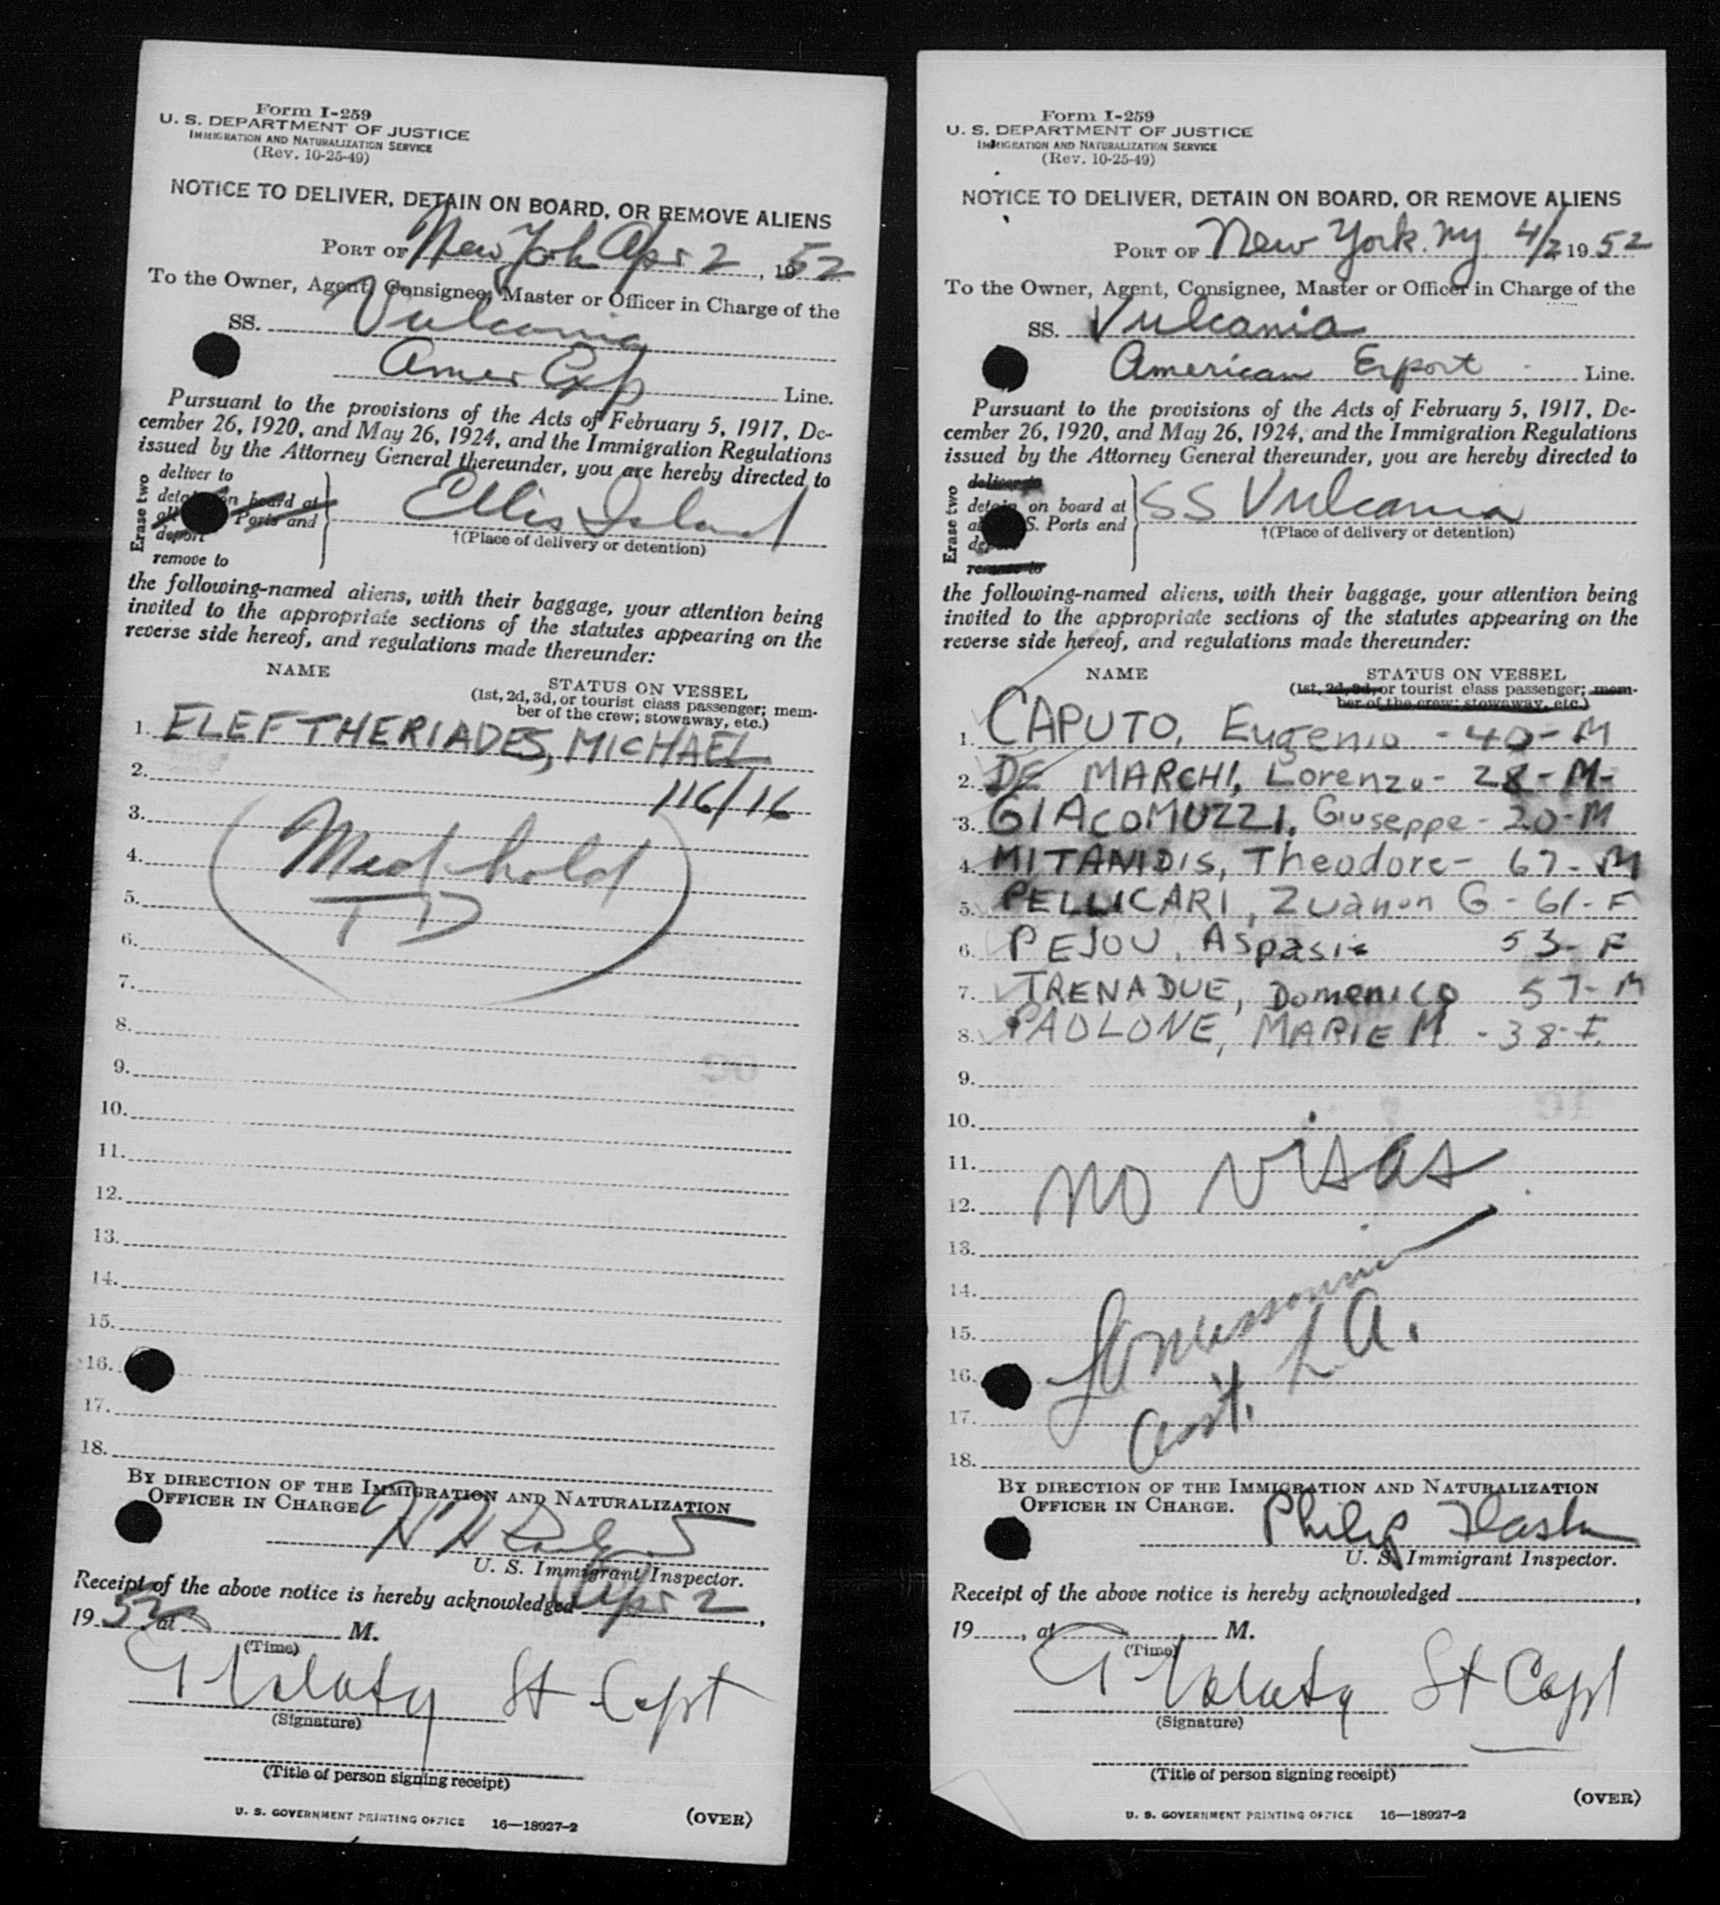 Form I-259
U. S. DEPARTMENT OF JUSTICE
IMMIGRATION AND NATURALIZATION SERVICE
(Rev. 10-25-49)
NOTICE TO DELIVER, DETAIN ON BOARD, OR REMOVE ALIENS
PORT OF New York Apr 2, 1952
To the Owner, Agent, Consignee, Master or Officer in Charge of the
SS. Vulcania
Amer Exp Line.
Pursuant to the provisions of the Acts of February 5, 1917, De-
cember 26, 1920, and May 26, 1924, and the Immigration Regulations
issued by the Attorney General thereunder, you are hereby directed to
Erase two
deliver to
on board at
Ports and
deport
remove to
Ellis Island
†(Place of delivery or detention)
the following-named aliens, with their baggage, your attention being
invited to the appropriate sections of the statutes appearing on the
reverse side hereof, and regulations made thereunder:
NAME
STATUS ON VESSEL
(1st, 2d, 3d, or tourist class passenger; mem-
ber of the crew; stowaway, etc.)
1. ELEFTHERIADES, MICHAEL
2. 116/16
3. Med hold
4.
5.
6.
7.
8.
9.
10.
11.
12.
13.
14.
15.
16.
17.
18.
BY DIRECTION OF THE IMMIGRATION AND NATURALIZATION
OFFICER IN CHARGE.
U. S. Immigrant Inspector.
Receipt of the above notice is hereby acknowledged Apr 2,
1952, at M.
(Time)
St Capt
(Signature)
(Title of person signing receipt)
(OVER)
U. S. GOVERNMENT PRINTING OFFICE 16—18927-2
Form I-259
U. S. DEPARTMENT OF JUSTICE
IMMIGRATION AND NATURALIZATION SERVICE
(Rev. 10-25-49)
NOTICE TO DELIVER, DETAIN ON BOARD, OR REMOVE ALIENS
PORT OF New York. Ny 4/2 1952
To the Owner, Agent, Consignee, Master or Officer in Charge of the
SS. Vulcania
American Export Line.
Pursuant to the provisions of the Acts of February 5, 1917, De-
cember 26, 1920, and May 26, 1924, and the Immigration Regulations
issued by the Attorney General thereunder, you are hereby directed to
Erase two
deliver to
detain on board at
S. Ports and
remove to
SS Vulcania
†(Place of delivery or detention)
the following-named aliens, with their baggage, your attention being
invited to the appropriate sections of the statutes appearing on the
reverse side hereof, and regulations made thereunder:
NAME
STATUS ON VESSEL
(1st, 2d, 3d, or tourist class passenger; mem-
ber of the crew; stowaway, etc.)
1. CAPUTO, Eugenio - 40 - M
2. DE MARCHI, Lorenzo - 28 - M-
3. GIACOMUZZI, Giuseppe - 20 - M
4. MITANIDIS, Theodore - 67 - M
5. PELLICARI, Zuanon G - 61 - F
6. PEJOU, Aspasia 53 - F
7. TRENADUE, Domenico 57 - M
8. PAOLONE, MARIE M - 38 - F.
9.
10.
11. no visas
12.
13.
14.
15. L.A.
16.
17. asst.
18.
BY DIRECTION OF THE IMMIGRATION AND NATURALIZATION
OFFICER IN CHARGE.
Philip
U. S. Immigrant Inspector.
Receipt of the above notice is hereby acknowledged ,
19 , at M.
(Time)
St Capt
(Signature)
(Title of person signing receipt)
(OVER)
U. S. GOVERNMENT PRINTING OFFICE 16—18927-2